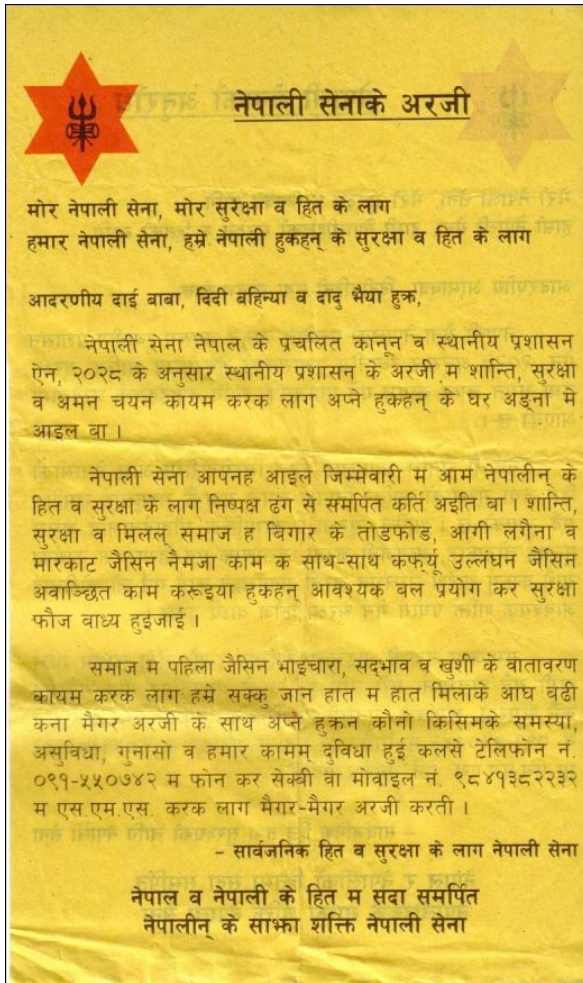 नेपाली सेनाके अरजी
मोर नेपाली सेना, मोर सुरक्षा व हित के लाग
हमार नेपाली सेना, हम्रे नेपाली हुकहन् के सुरक्षा व हित के लाग
आदरणीय दाई बाबा, दिदी बहिन्या व दादु भैया हुक्र,
नेपाली सेना नेपाल के प्रचलित कानून व स्थानीय प्रशासन
ऐन, २०२८ के अनुसार स्थानीय प्रशासन के अरजी म शान्ति, सुरक्षा
व अमन चयन कायम करक लाग अप्ने हुकहेन् के घर अङ्ना मे
आइल बा ।
नेपाली सेना आपनह आइले जिम्मेवारी म आम नेपालीन् के
हित व सुरक्षा के लाग निष्पक्ष ढंग से समर्पित कर्ति अइति बा । शान्ति,
सुरक्षा व मिलल् समाज ह बिगार के तोडफोड, आगी लगैना व
मारकाट जैसिन नैमजा काम क साथ-साथ कर्फ्यू उल्लंघन जैसिन
अवाञ्छित काम करूइया हुकहन् आवश्यक बल प्रयोग कर सुरक्षा
फौज वाध्य हुइजाई ।
समाज म पहिला जैसिन भाइचारा, सद्भाव व खुशी के वातावरण
कायम करक लाग हम्रे सक्कु जान हात म हात मिलाके आघ बढी
कना मैगर अरजी के साथ अप्ने हुक्रन कौनो किसिमके समस्या,
असुविधा, गुनासो व हमार कामम् दुविधा हुई कलसे टेलिफोन नं.
०९१-५५०७४२ म फोन कर सेक्बी वा मोवाइल नं. ९८४१३८२२३२
म एस.एम.एस. करक लाग मैगर-मैगर अरजी करती ।
– सार्वजनिक हित व सुरक्षा के लाग नेपाली सेना
नेपाल व नेपाली के हित म सदा समर्पित
नेपालीन् के साझा शक्ति नेपाली सेना